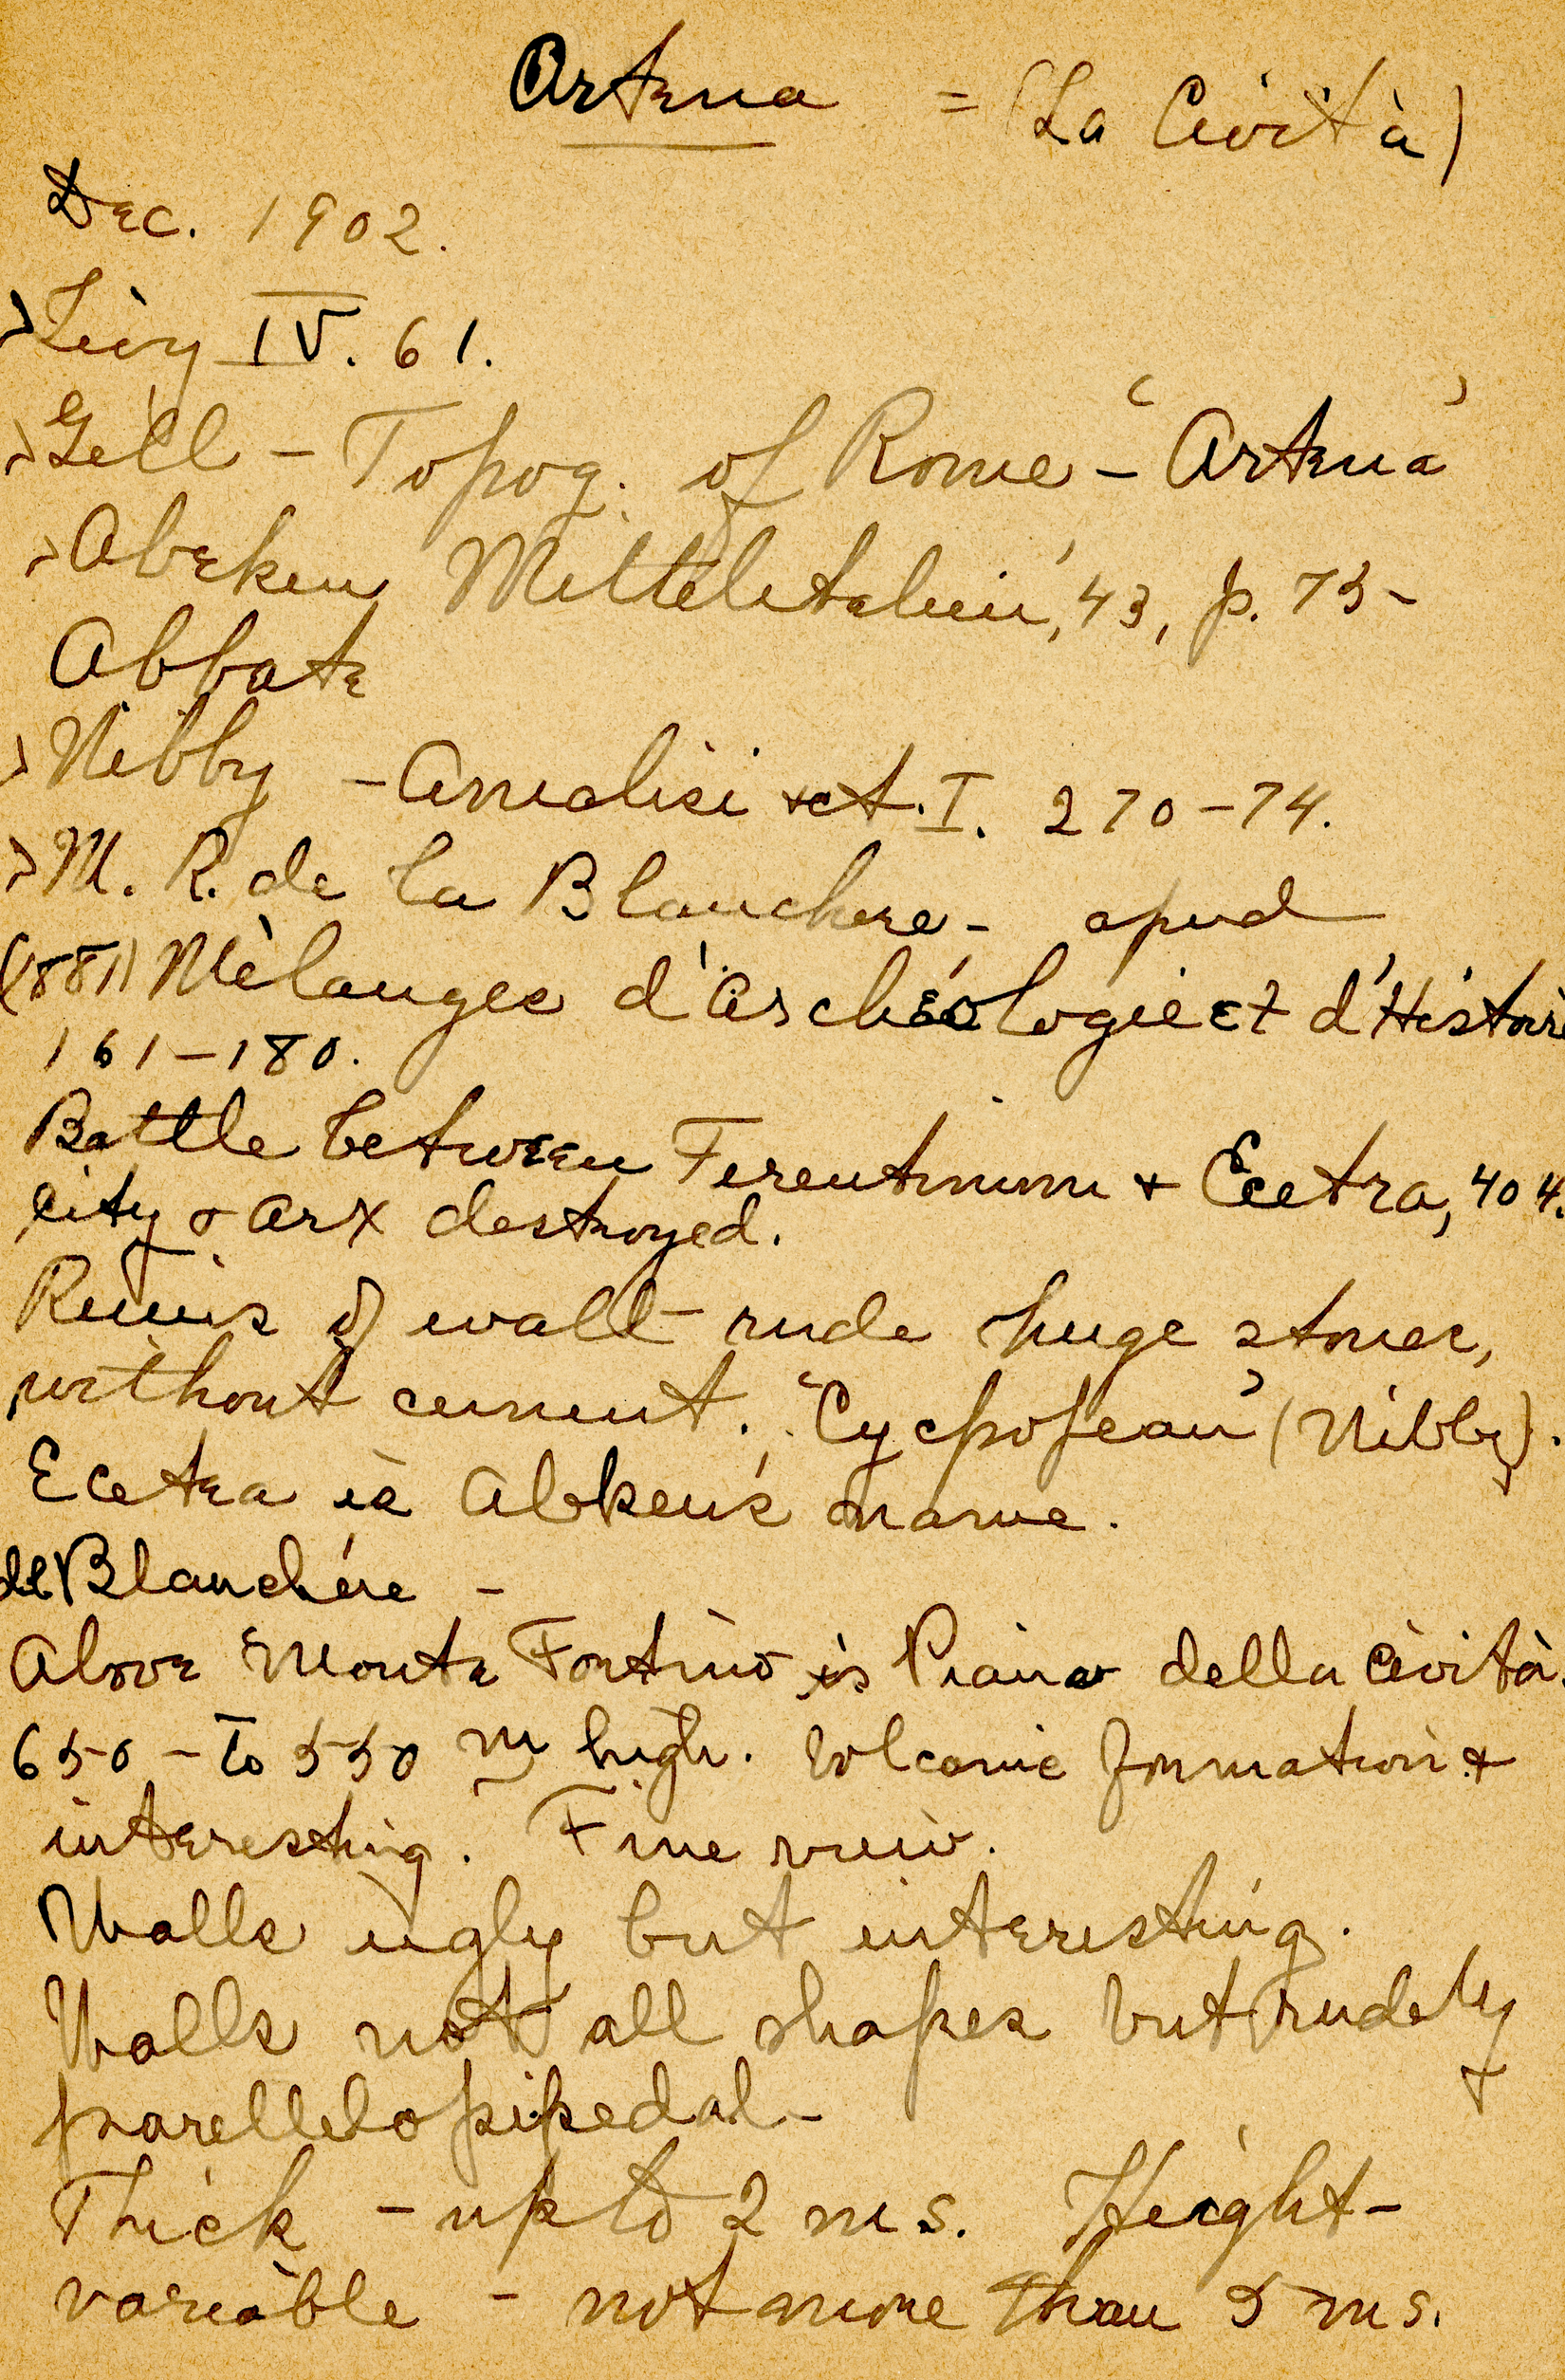 Artena = (La Cività)
Dec. 1902.
> Livy IV. 61.
> Gell - Topog. of Rome - "Artena"
> Abeken Mittelitalien, '43, p. 75-
Abbate
> Nibby - Analisi ect. I. 270-74.
> M. R. de la Blanchere - apud
(1881) Mèlanges d'Archéologie et d'Histoire
161-180.
Battle between Ferentinum & Ecetra, 404.
City & Arx destroyed.
Ruins of wall - rude huge stones,
without cement. "Cyclopean" (Nibby).
Ecetra is Abken's name.
de Blanchére -
Above Monte Fortino is Piano della Cività.
650 - to 550 m high. Volcanic formation &
interesting. Fine view.
Walls ugly but interesting.
Walls not all shapes but rudely
parellelopipedal -
Thick - up to 2 ms. Height -
variable - not more than 5 ms.